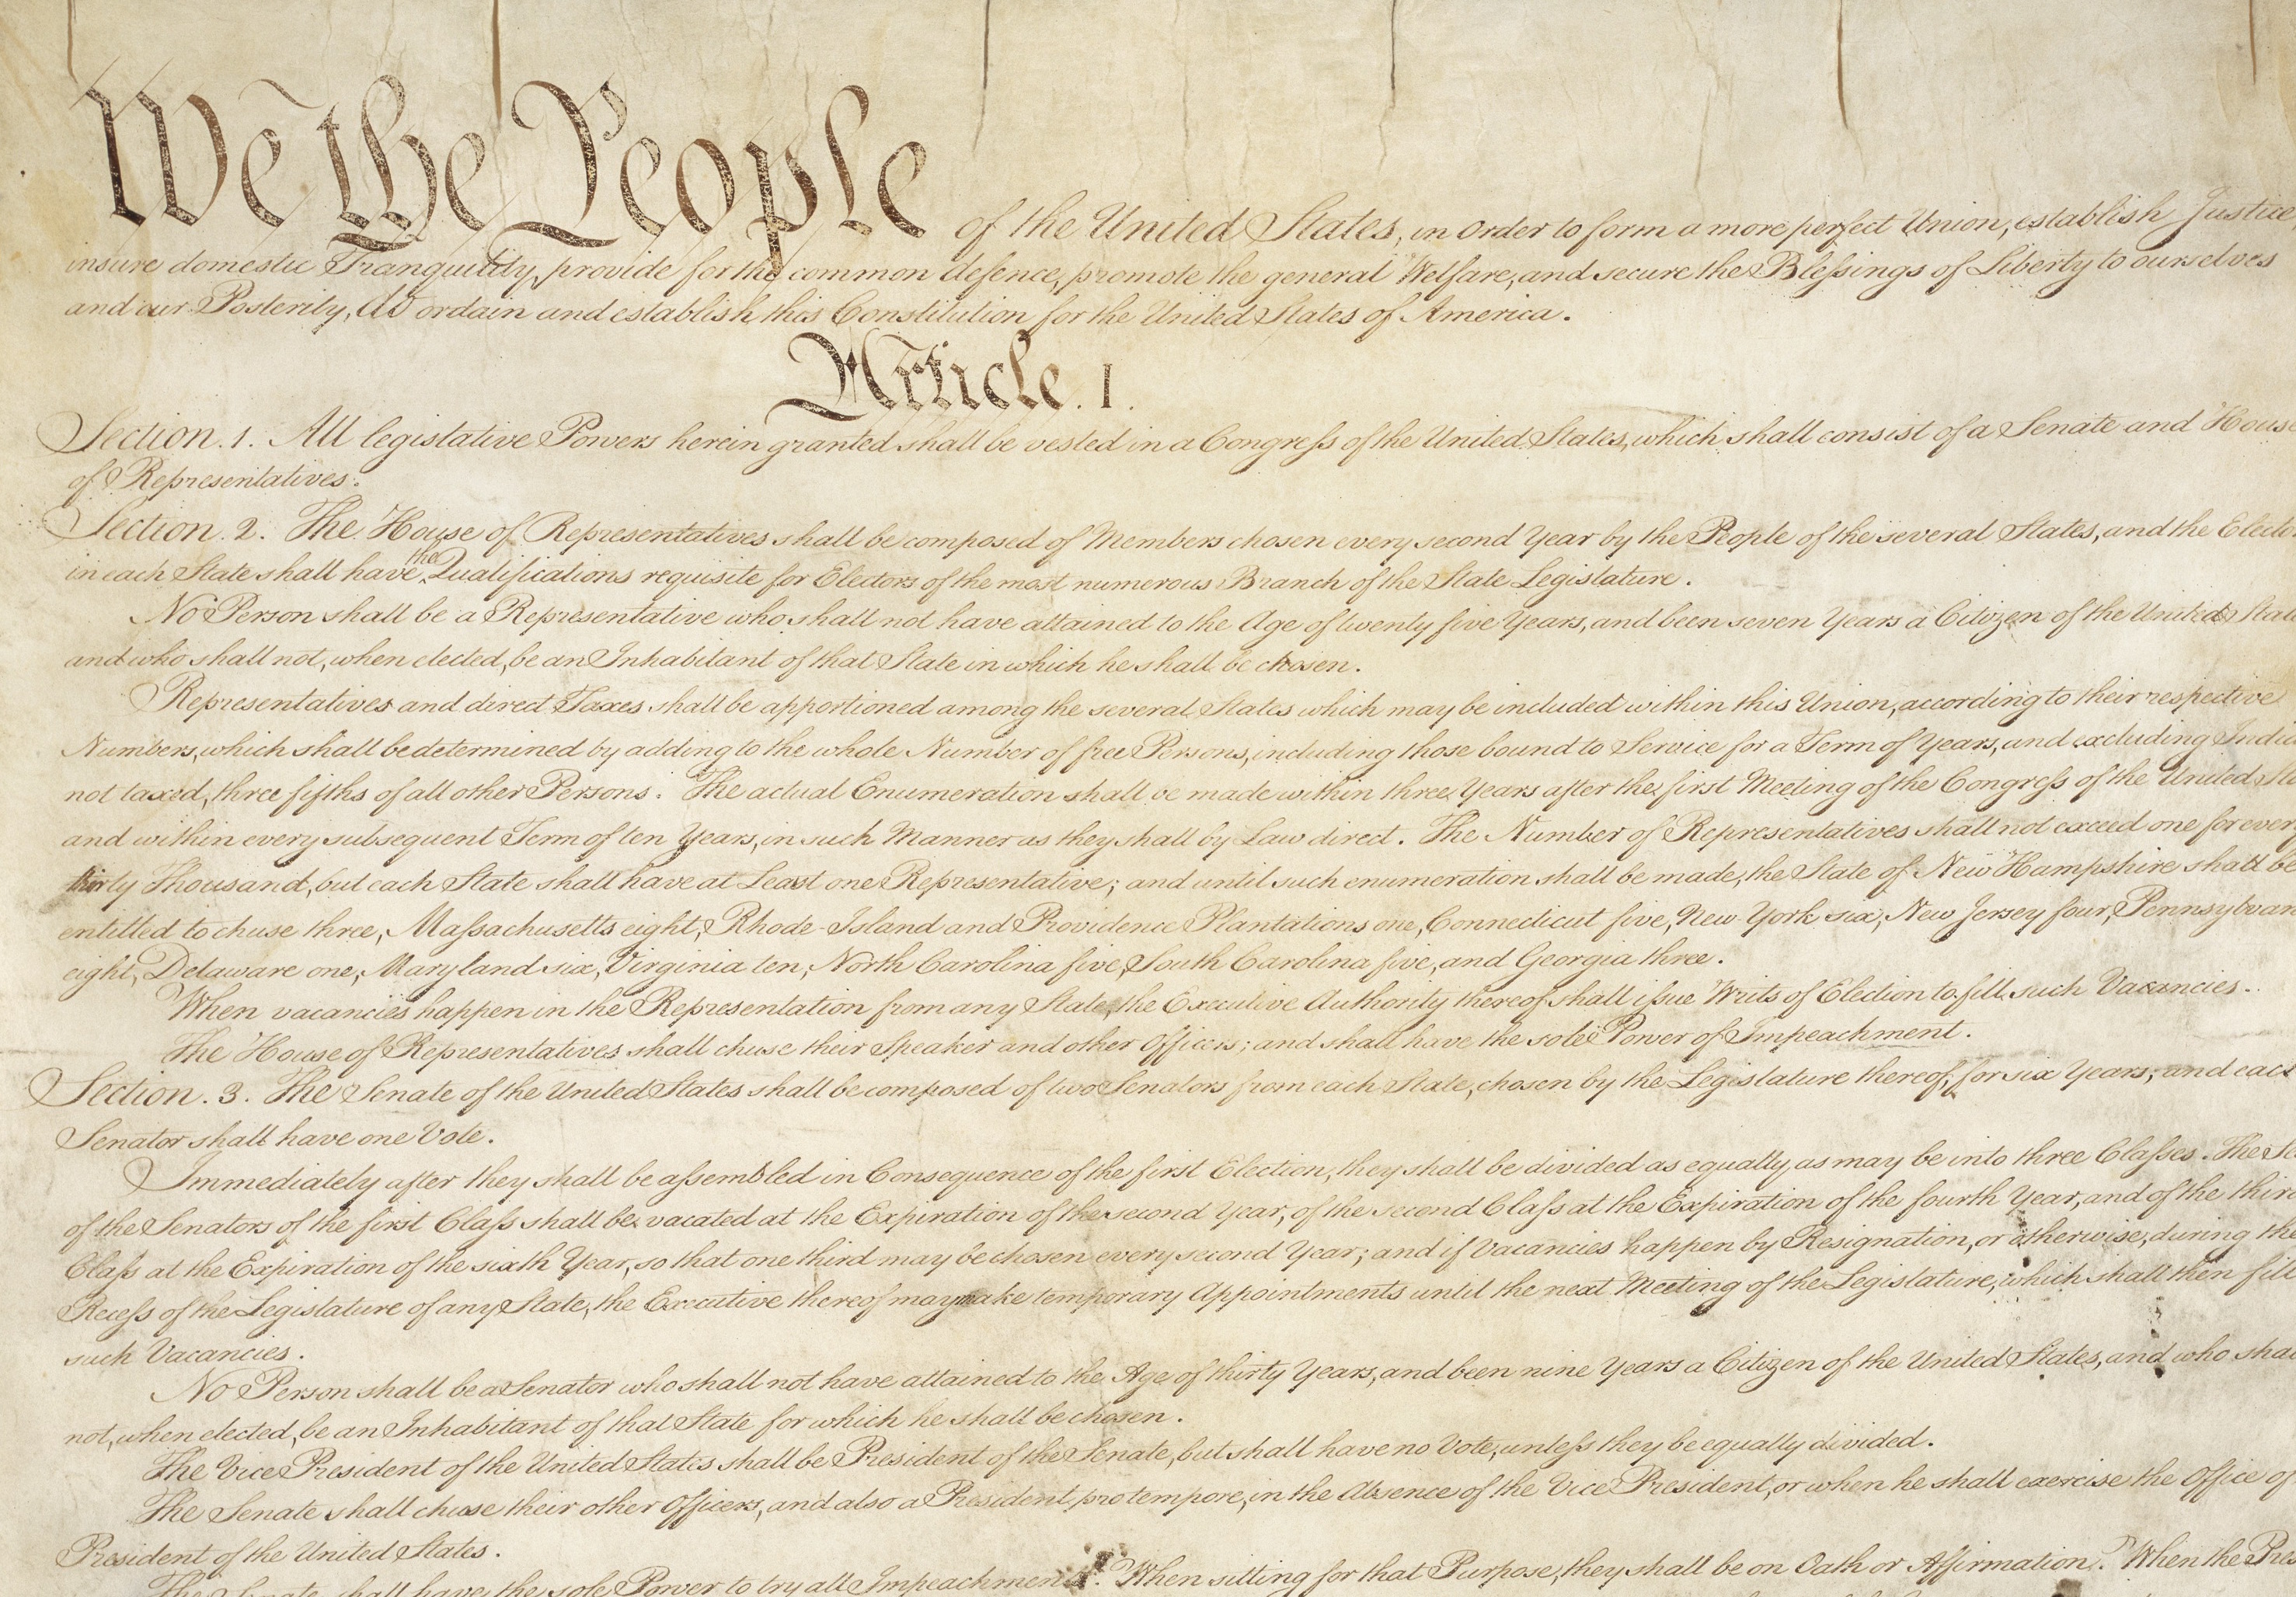 We the People of the United States, in Order to form a more perfect Union, establish Justice,
insure domestic Tranquility, provide for the common defence, promote the general Welfare, and secure the Blessings of Liberty to ourselves
and our Posterity, do ordain and establish this Constitution for the United States of America.
Article. I.
Section. 1. All legislative Powers herein granted shall be vested in a Congress of the United States, which shall consist of a Senate and House
of Representatives.
Section. 2. The House of Representatives shall be composed of Members chosen every second Year by the People of the several States, and the Electo
in each State shall have the Qualifications requisite for Electors of the most numerous Branch of the State Legislature.
No Person shall be a Representative who shall not have attained to the Age of twenty five Years, and been seven Years a Citizen of the United State
and who shall not, when elected, be an Inhabitant of that State in which he shall be chosen.
Representatives and direct Taxes shall be apportioned among the several States which may be included within this Union, according to their respective
Numbers, which shall be determined by adding to the whole Number of free Persons, including those bound to Service for a Term of Years, and excluding India
not taxed, three fifths of all other Persons. The actual Enumeration shall be made within three Years after the first Meeting of the Congress of the United Sta
and within every subsequent Term of ten Years, in such Manner as they shall by Law direct. The Number of Representatives shall not exceed one for every
thirty Thousand, but each State shall have at Least one Representative; and until such enumeration shall be made, the State of New Hampshire shall be
entitled to chuse three, Massachusetts eight, Rhode-Island and Providence Plantations one, Connecticut five, New-York six, New Jersey four, Pennsylvan
eight, Delaware one, Maryland six, Virginia ten, North Carolina five, South Carolina five, and Georgia three.
When vacancies happen in the Representation from any State, the Executive Authority thereof shall issue Writs of Election to fill such Vacancies.
The House of Representatives shall chuse their Speaker and other Officers; and shall have the sole Power of Impeachment.
Section. 3. The Senate of the United States shall be composed of two Senators from each State, chosen by the Legislature thereof, for six Years; and each
Senator shall have one Vote.
Immediately after they shall be assembled in Consequence of the first Election, they shall be divided as equally as may be into three Classes. The Se
of the Senators of the first Class shall be vacated at the Expiration of the second Year, of the second Class at the Expiration of the fourth Year, and of the third
Class at the Expiration of the sixth Year, so that one third may be chosen every second Year; and if Vacancies happen by Resignation, or otherwise, during the
Recess of the Legislature of any State, the Executive thereof may make temporary Appointments until the next Meeting of the Legislature, which shall then fill
such Vacancies.
No Person shall be a Senator who shall not have attained to the Age of thirty Years, and been nine Years a Citizen of the United States, and who shal
not, when elected, be an Inhabitant of that State for which he shall be chosen.
The Vice President of the United States shall be President of the Senate, but shall have no Vote, unless they be equally divided.
The Senate shall chuse their other Officers, and also a President pro tempore, in the Absence of the Vice President, or when he shall exercise the Office of
President of the United States.
The Senate shall have the sole Power to try all Impeachments. When sitting for that Purpose, they shall be on Oath or Affirmation. When the Pres